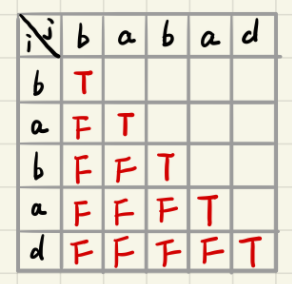 i j b a b a d
b T
a F T
b F F T
a F F F T
d F F F F T